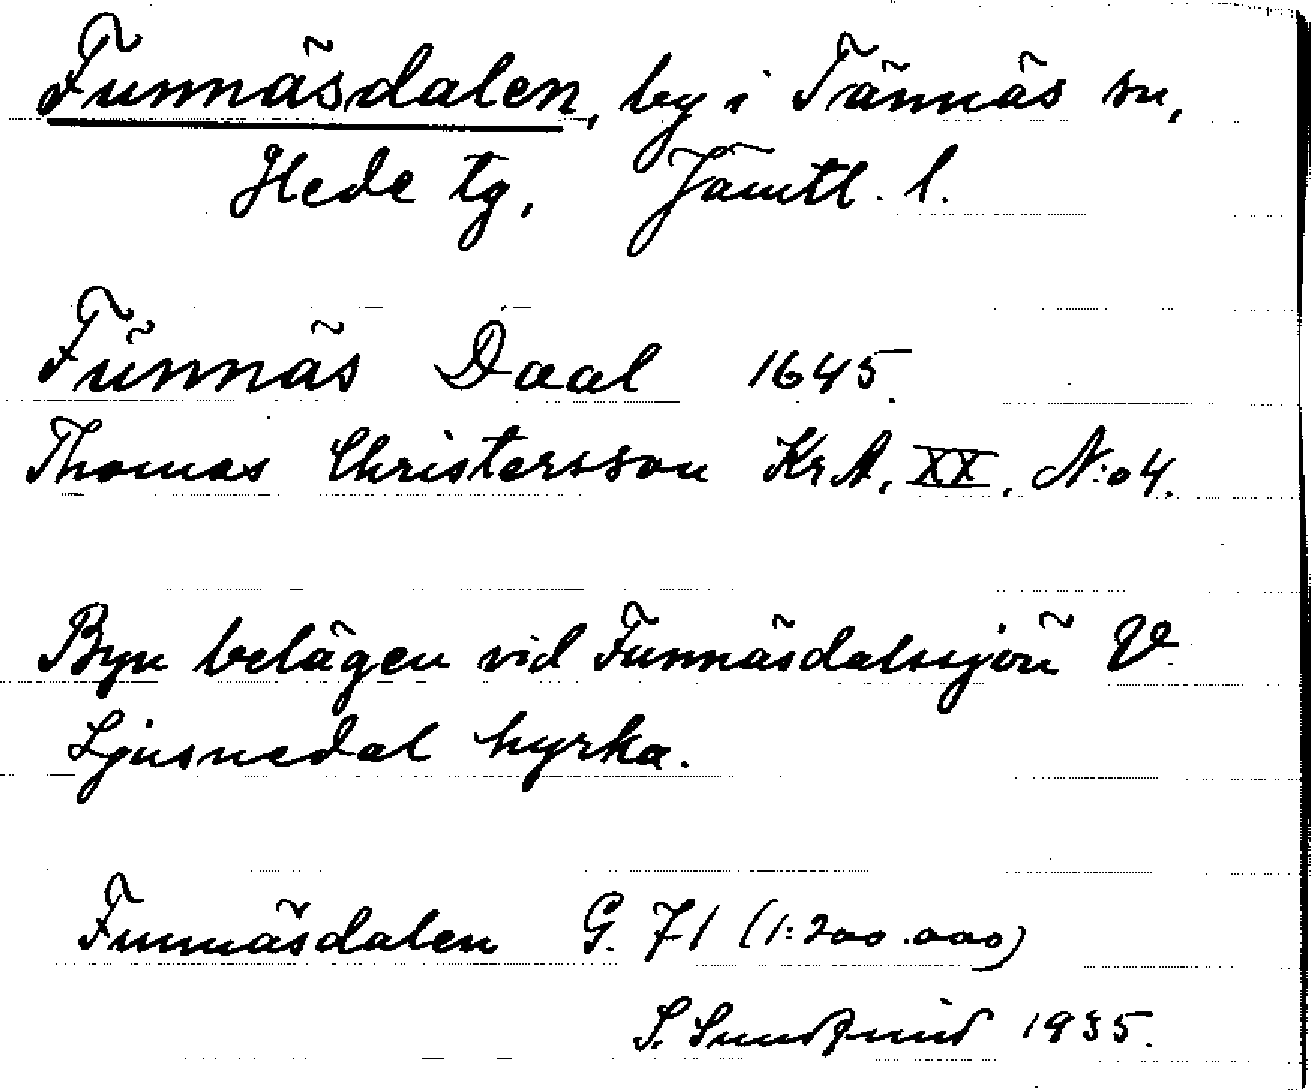 Funnäsdalen, by i Tännäs sn,
Hede tg, Jämtl. l.
Fünnäs Daal 1645.
Thomas Christersson KrA, XX, N:o 4.
Byn belägen vid Funnäsdalssjön V
Ljusnedal kyrka.
Funnäsdalen G. 71 (1:200.000)
S. 1935.